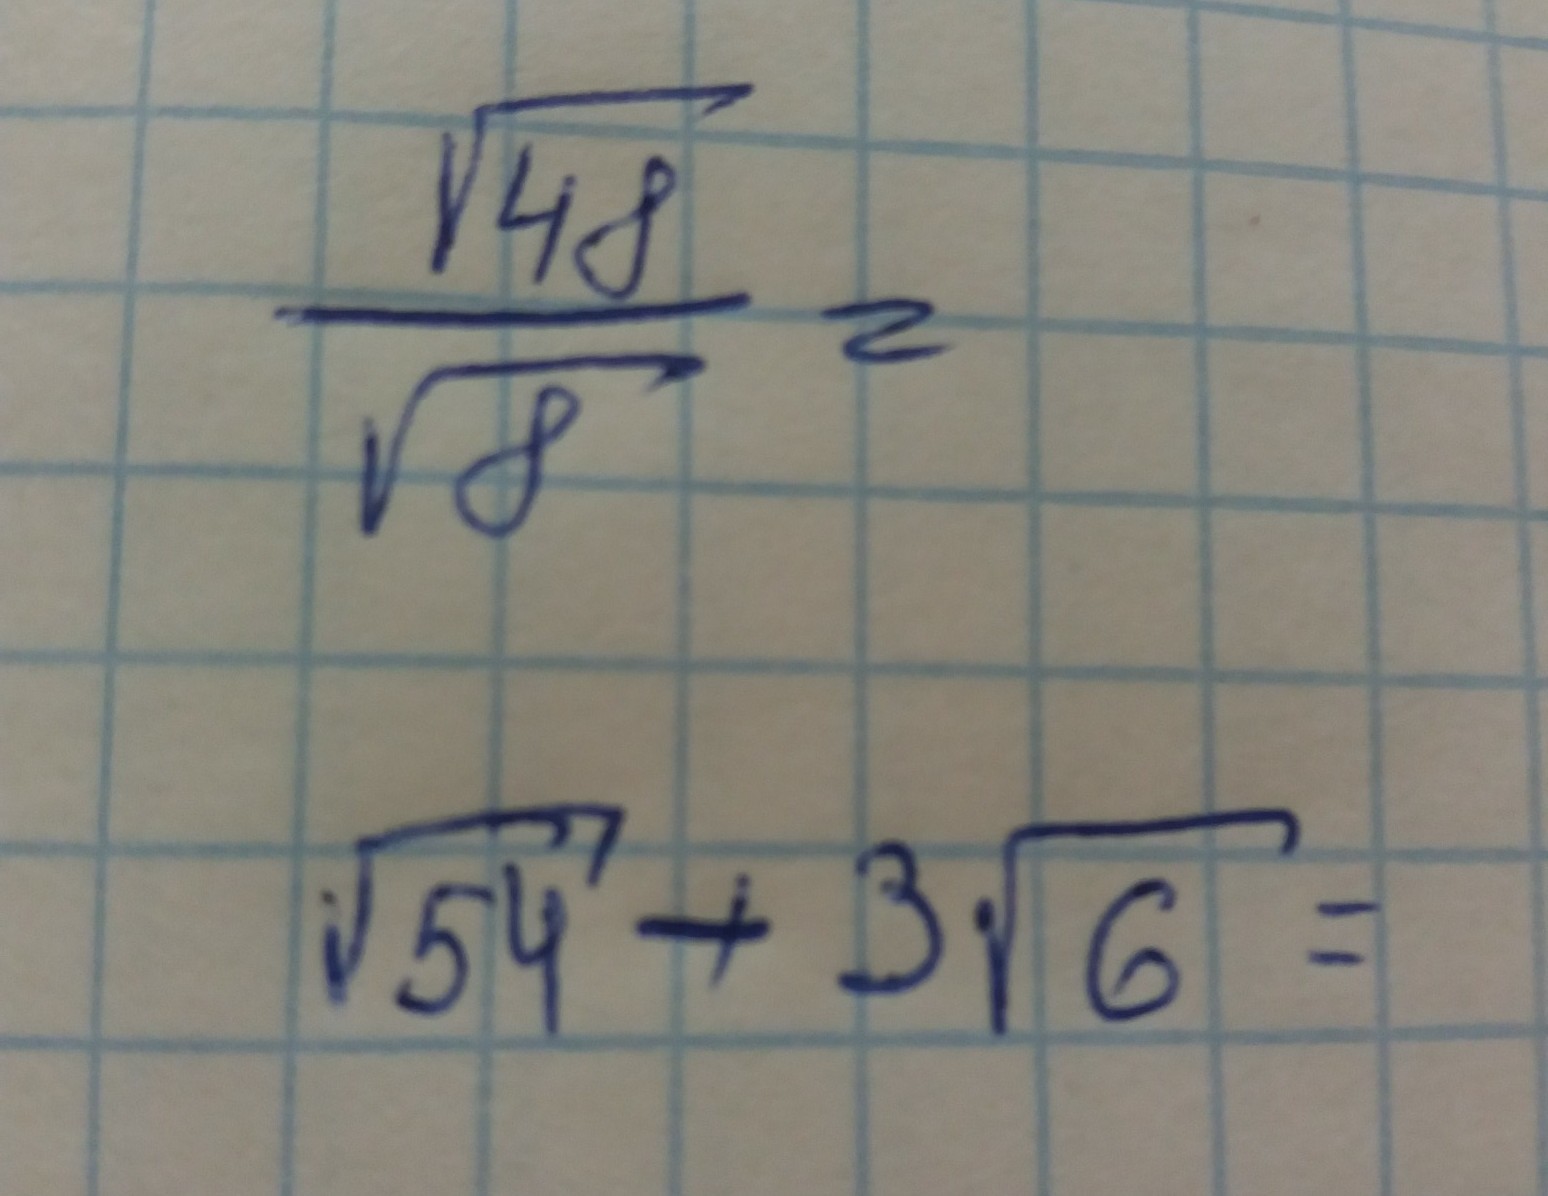 √48
/
√8 =
√54 + 3√6 =